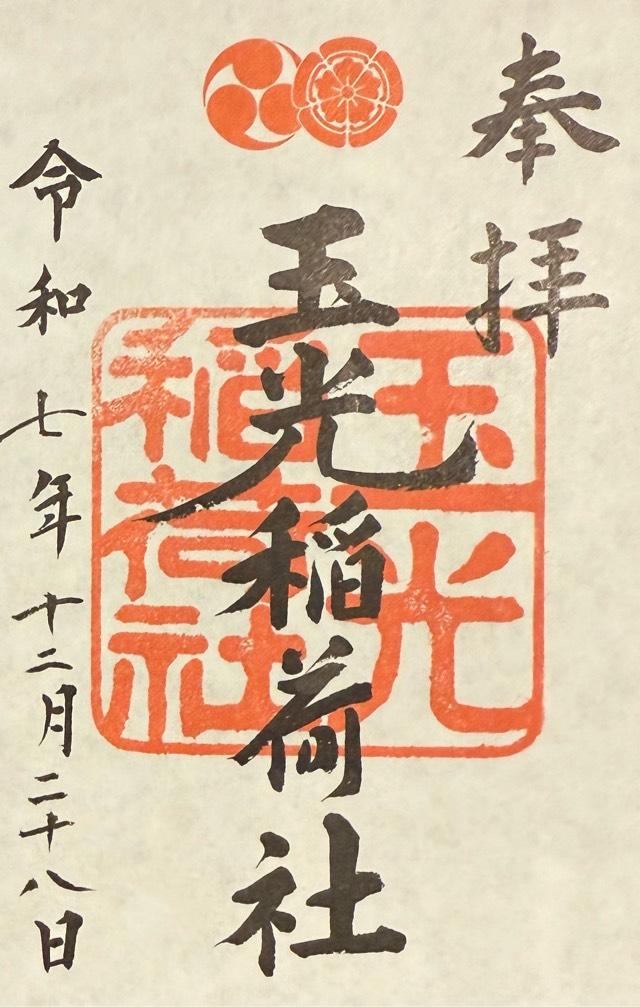 奉拝
玉光稲荷社
玉光
稲荷社
令和七年十二月二十八日